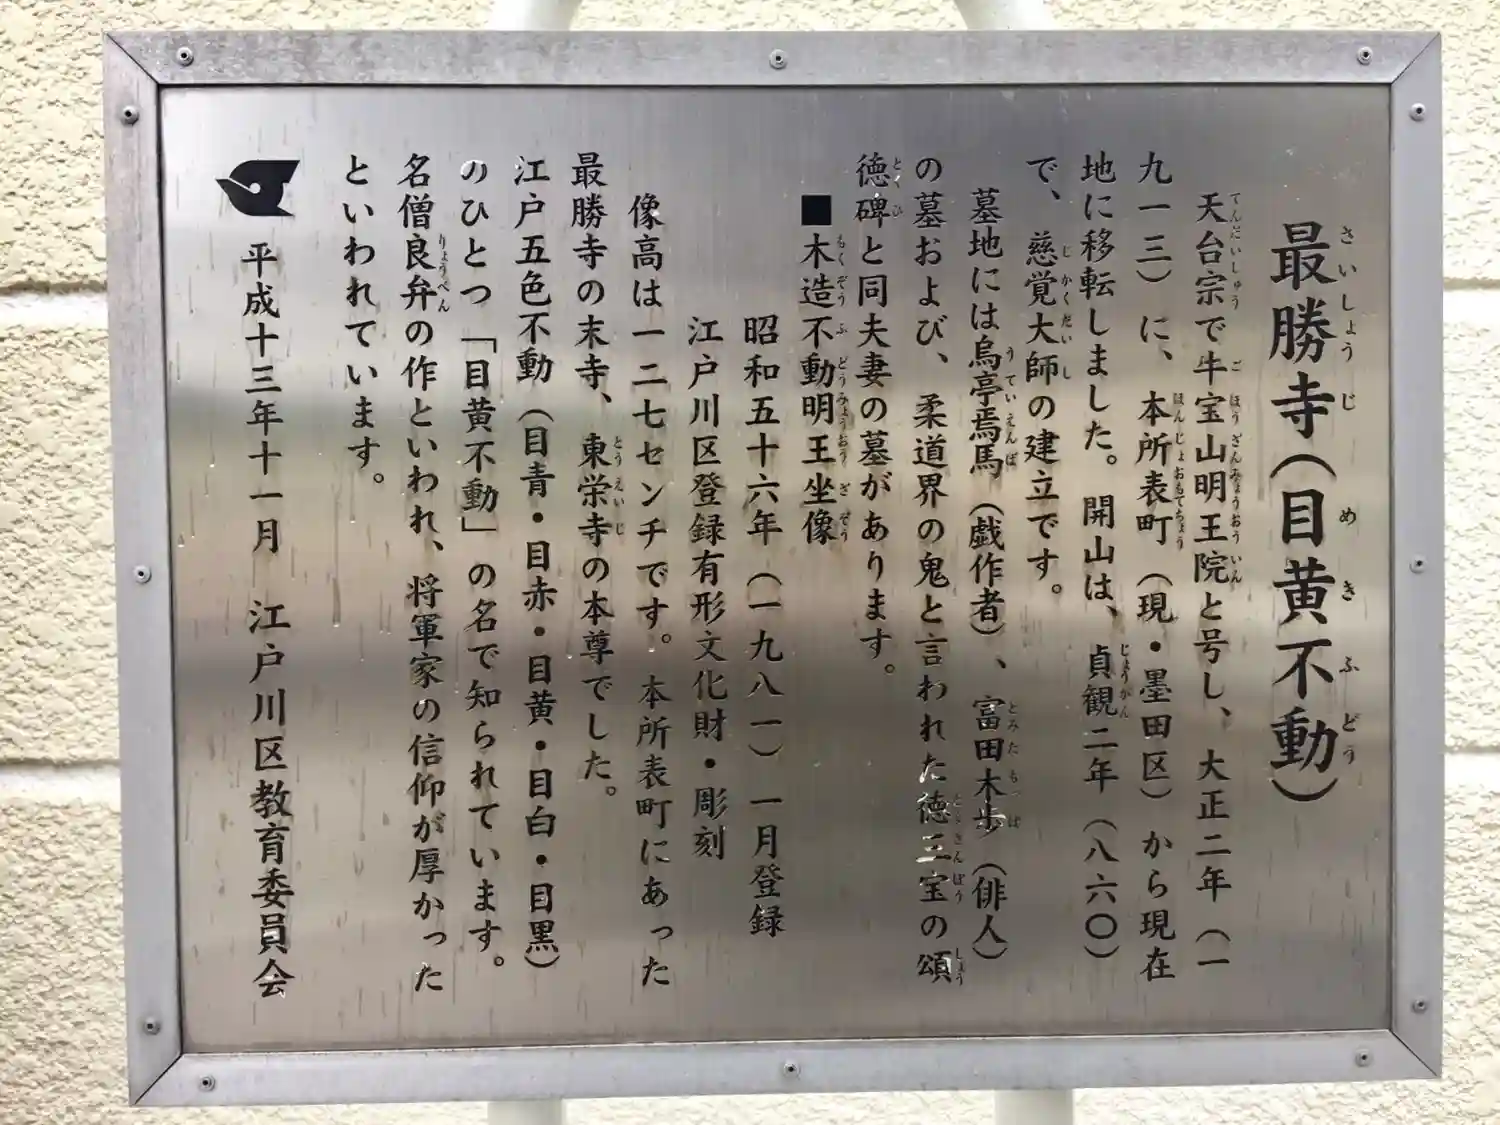 最勝寺(目黄不動)
天台宗で牛宝山明王院と号し、大正二年（一
九一三）に、本所表町（現・墨田区）から現在
地に移転しました。開山は、貞観二年（八六〇）
で、慈覚大師の建立です。
墓地には烏亭焉馬（戯作者）、富田木歩（俳人）
の墓および、柔道界の鬼と言われた徳三宝の頌
徳碑と同夫妻の墓があります。
■木造不動明王坐像
昭和五十六年（一九八一）一月登録
江戸川区登録有形文化財・彫刻
像高は一二七センチです。本所表町にあった
最勝寺の末寺、東栄寺の本尊でした。
江戸五色不動（目青・目赤・目黄・目白・目黒）
のひとつ「目黄不動」の名で知られています。
名僧良弁の作といわれ、将軍家の信仰が厚かった
といわれています。
平成十三年十一月　江戸川区教育委員会